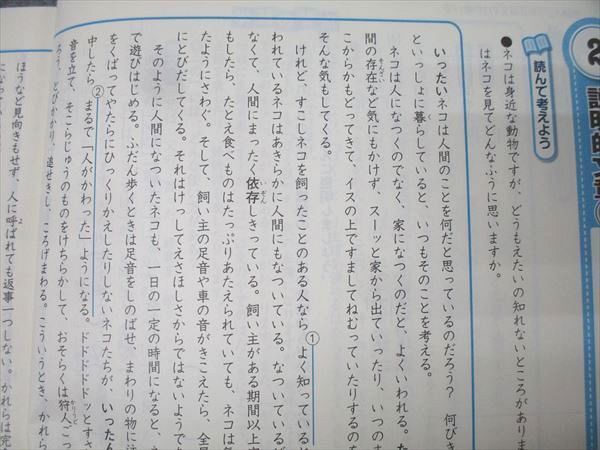 2 説明的文章
読んで考えよう
●ネコは身近な動物ですが、どうもえたいの知れないところがありま
はネコを見てどんなふうに思いますか。
いったいネコは人間のことを何だと思っているのだろう？　何びき
といっしょに暮らしていると、いつもそのことを考える。
ネコは人になつくのでなく、家になつくのだと、よくいわれる。た
間の存在など気にもかけず、スーッと家から出ていったり、いつのま
こからかもどってきて、イスの上ですましてねむっていたりするのを
そんな気もしてくる。
けれど、すこしネコを飼ったことのある人なら①よく知っている
われているネコはあきらかに人間にもなついている。なついているが
なくて、人間にまったく依存しきっている。飼い主がある期間以上
もしたら、たとえ食べものはたっぷりあたえられていても、ネコは気
たようにさわぐ。そして、飼い主の足音や車の音がきこえたら、全
にとびだしてくる。それはけっしてえさほしさからではないようで
そのように人間になついたネコも、一日の一定の時間になると、
で遊びはじめる。ふだん歩くときは足音をしのばせ、まわりの物に注
をくばってやたらにひっくりかえしたりしないネコたちが、いったん
中したら②まるで「人がかわった」ようになる。ドドドドドッとすさ
音を立て、そこらじゅうのものをけちらかして、おそらくは狩人ごっ
ろう、とびかかり、追せきし、ころげまわる。こういうとき、かれら
ほうなど見向きもせず、人に呼ばれても返事一つしない。かれらは完